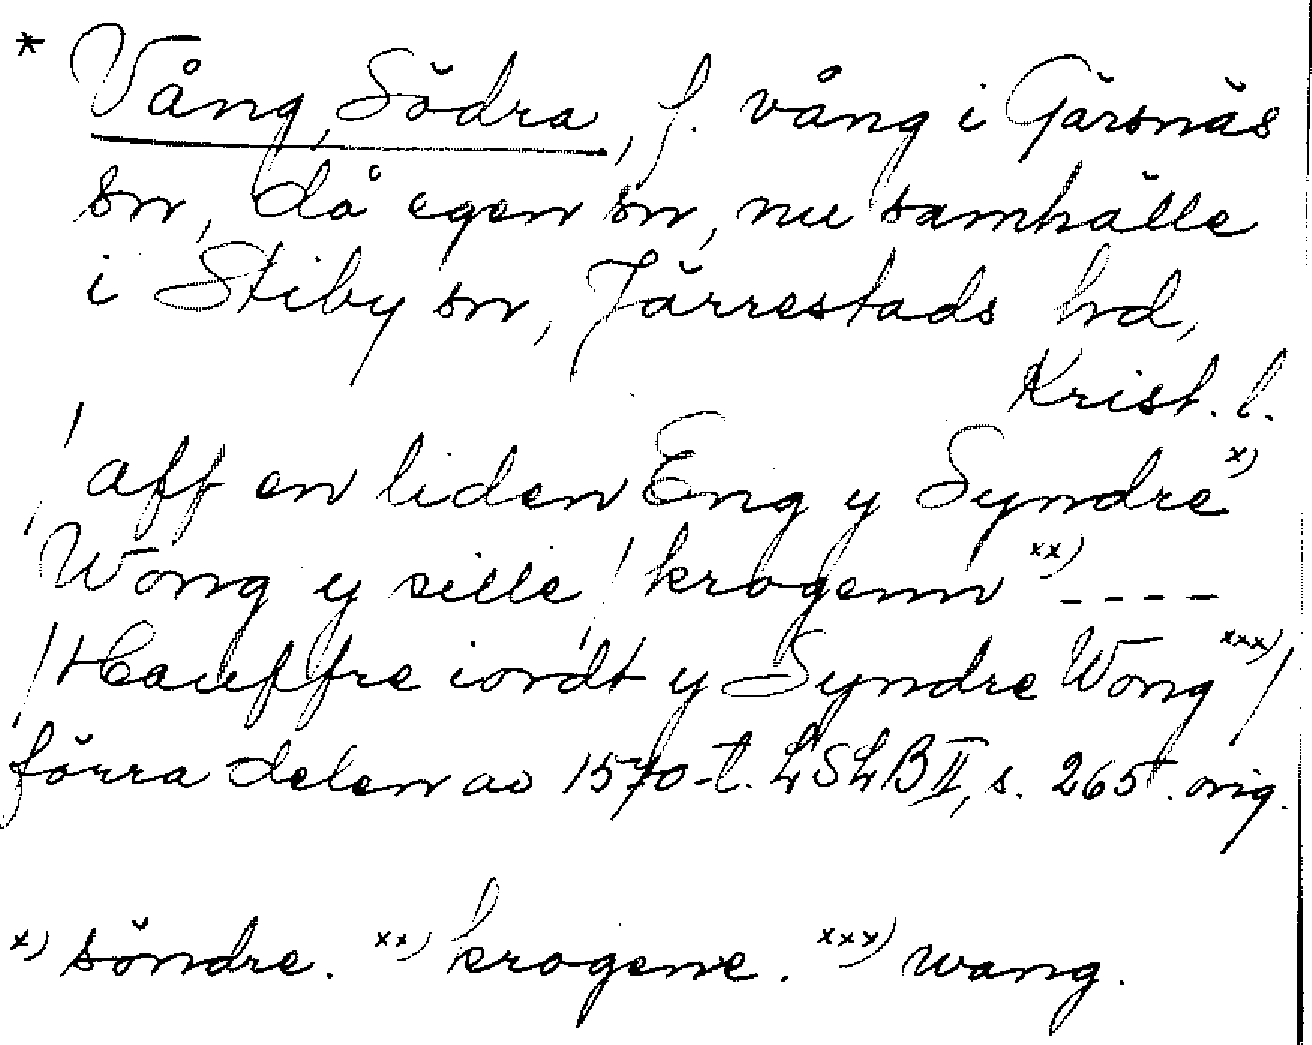 * Vång, Södra, f. vång i Gärsnäs
sn, då egen sn, nu samhälle
i Stiby sn, Järrestads hd,
Krist. l.
/ aff en liden Eng y Syndre x)
Wong y sille / krogenn xx) ----
/ Hauffre iordt y Syndre Wong xxx) /
förra delen av 1570-t. LSLB II, s. 265. orig.
x) söndre. xx) krogene. xxx) wang.